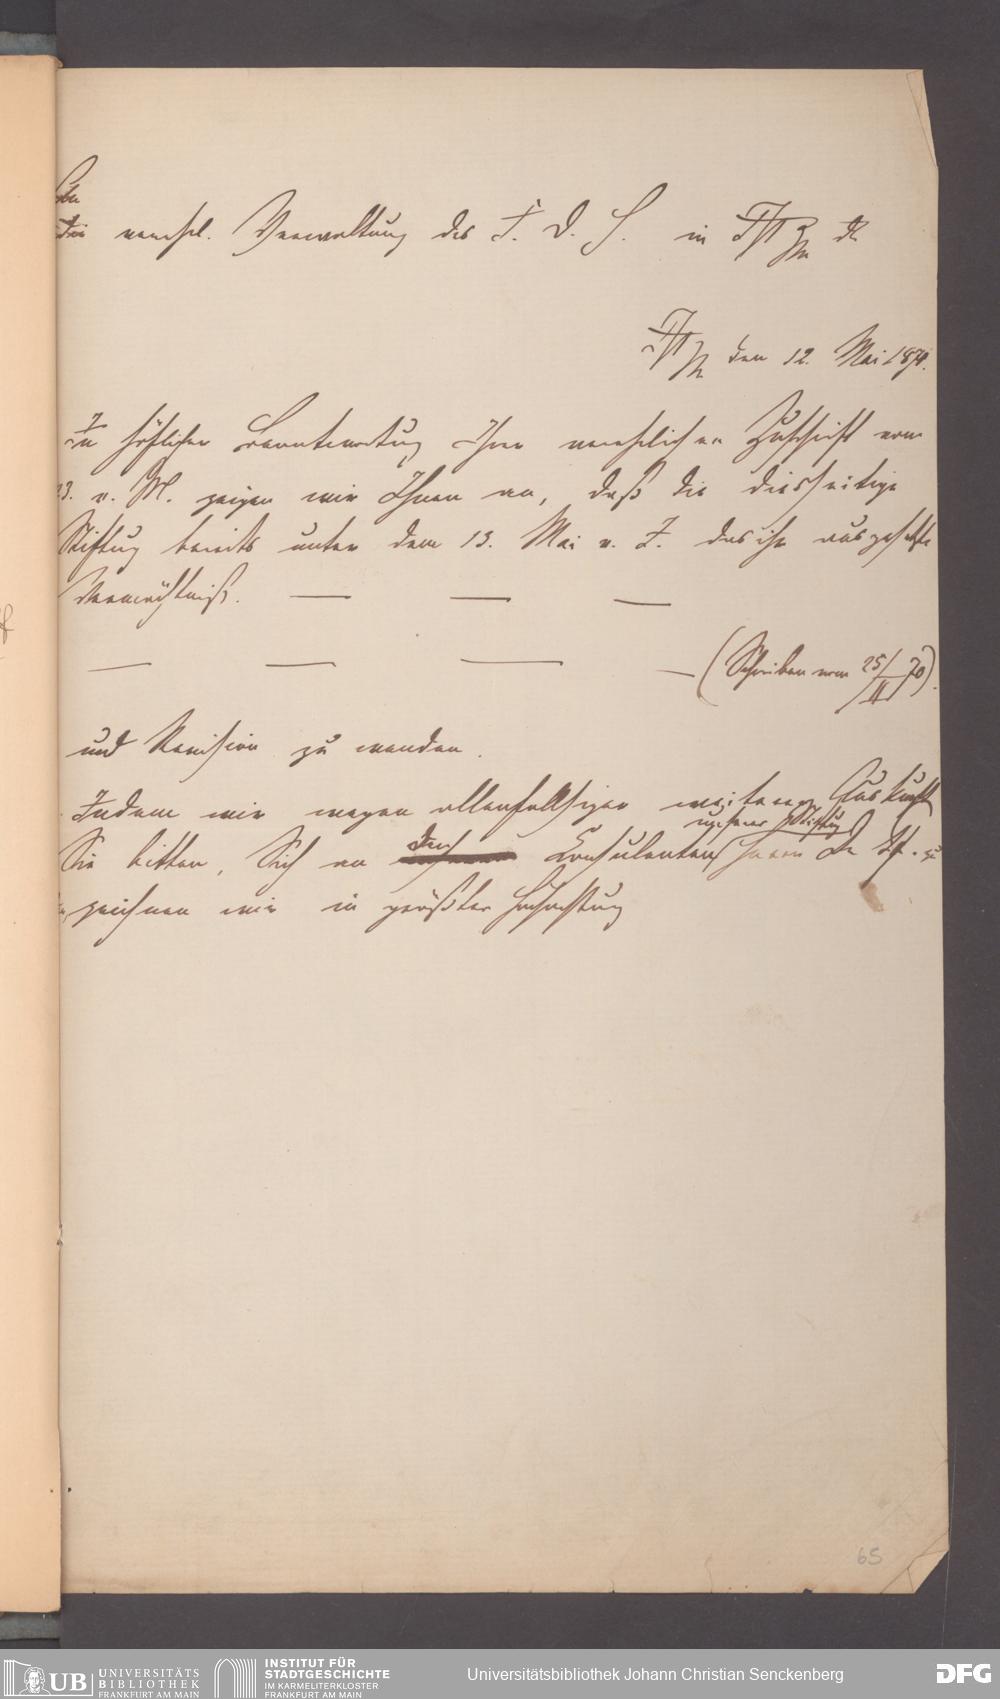 An
die verehrl. Verwaltung des F. D. H. in Ffrt
Ffrt den 12. Mai 1871.
In höflicher Beantwortung Ihrer verehrlichen Zuschrift vom
23. v. M. zeigen wir Ihnen an, daß die diesseitige
Stiftung bereits unter dem 13. Mai v. J. das ihr ausgesetzte
Vermächtniß. — — —
— — — — (Schreiben vom 25/II 70).
und Revision zu wenden.
Indem wir wegen allenfallsiger weiterer Auskunft
unserer Stiftung
Sie bitten, Sich an den Consulenten Herrn Dr zu
zeichnen wir in größter Hochachtung
65
UB UNIVERSITÄTS
BIBLIOTHEK
FRANKFURT AM MAIN
INSTITUT FÜR
STADTGESCHICHTE
IM KARMELITERKLOSTER
FRANKFURT AM MAIN
Universitätsbibliothek Johann Christian Senckenberg
DFG